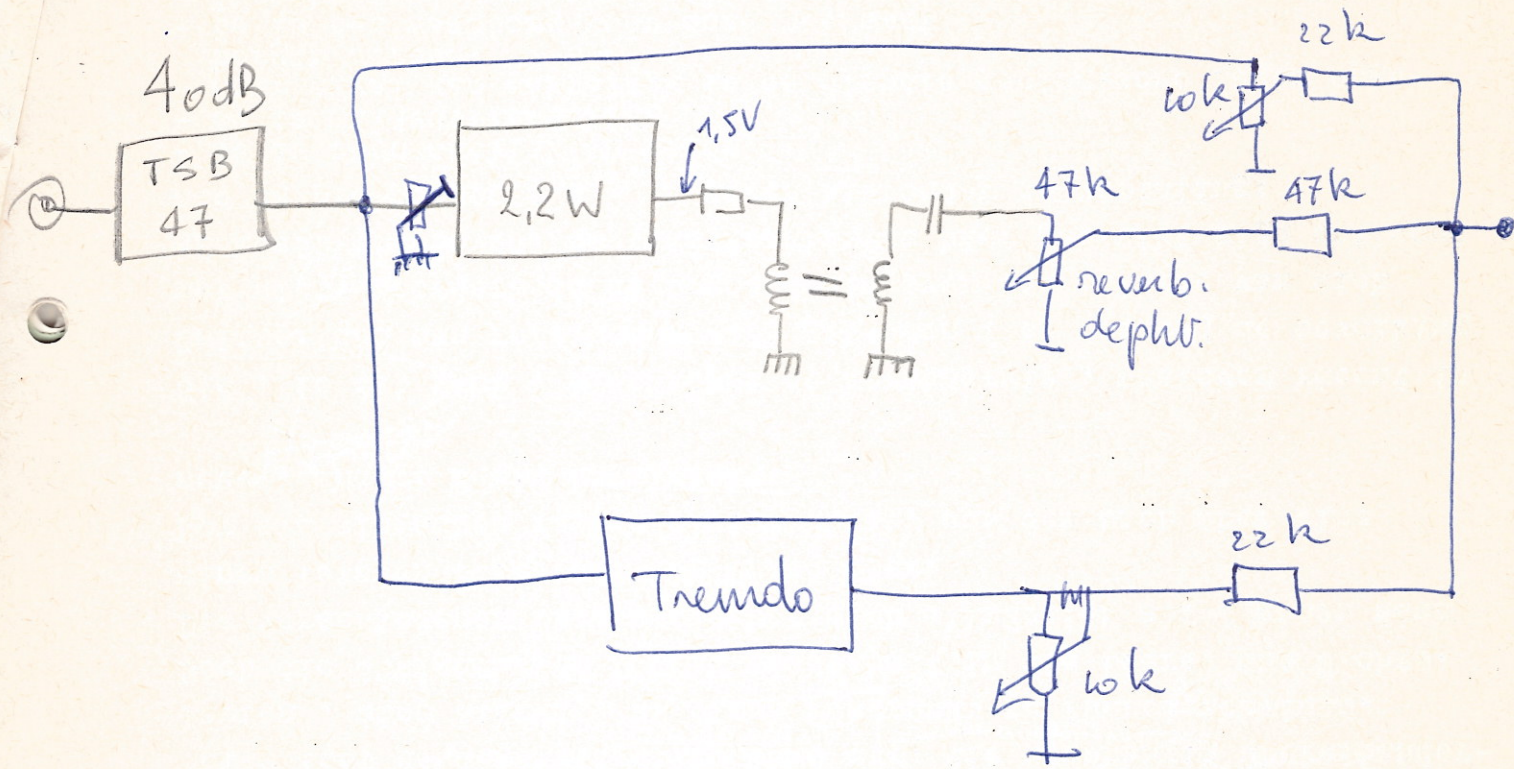 40dB
TSB
47
2,2W
1,5V
10k
22k
47k
47k
reverb.
depht.
Tremolo
22k
10k